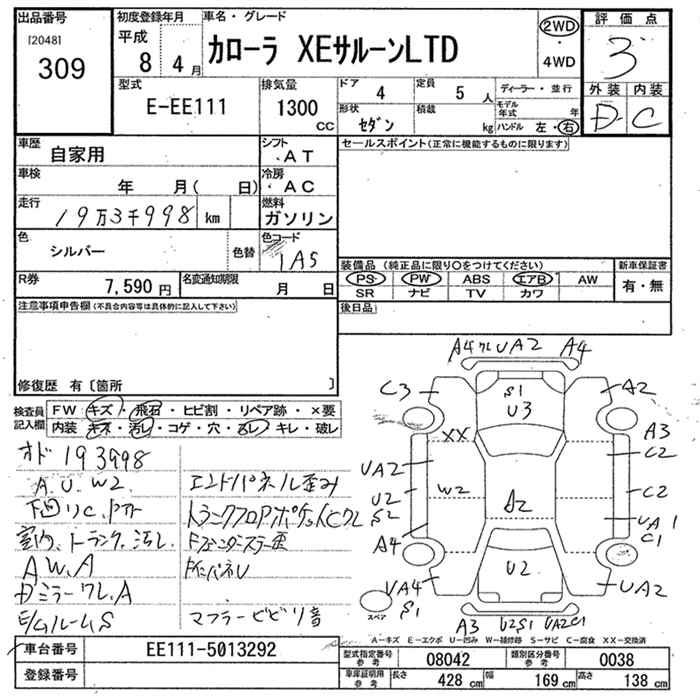 出品番号
[2048]
309
初度登録年月
平成
8年4月
車名・グレード
カローラ XEサルーンLTD
2WD
・
4WD
評価点
3
外装 内装
D C
型式
E-EE111
排気量
1300
cc
ドア
4
定員
5人
形状
セダン
積載
kg
ディーラー・並行
モデル年式 年
ハンドル 左・右
車歴
自家用
シフト
・AT
セールスポイント(正常に機能するものに限ります)
車検
年 月( 日)
冷房
・AC
走行
19万3千998 km
燃料
ガソリン
色
シルバー
色替
色コード
1A5
装備品(純正品に限り○をつけてください)
PS PW ABS エアB AW
SR ナビ TV カワ
新車保証書
有・無
R券
7,590円
名変通知期限
月 日
注意事項申告欄(不具合内容等は具体的に記入して下さい)
後日品
修復歴 有〔箇所 〕
検査員記入欄
FW キズ・飛石・ヒビ割・リペア跡・×要
内装 キズ・汚レ・コゲ・穴・スレ・キレ・破レ
オド 193998
A.U.W2
下回りC.
室内、トランク、汚レ
AW.A
DミラーワレA
E/gルームS
エンドパネル歪み
トランクフロアポケットCワレ
マフラービビリ音
A4 ワレ UA2 A4
C3
S1
U3
A2
XX
A3
C2
UA2
W2
A2
U2
S2
C2
A4
UA1
C1
UA4
S1
U2
UA2
スペア
A3 U2S1 UA2C1
A-キズ E-エクボ U-凹み W-補修跡 S-サビ C-腐食 XX-交換済
車台番号
EE111-5013292
登録番号
型式指定番号
参考
08042
類別区分番号
参考
0038
車庫証明用
参考
長さ
428 cm
幅
169 cm
高さ
138 cm